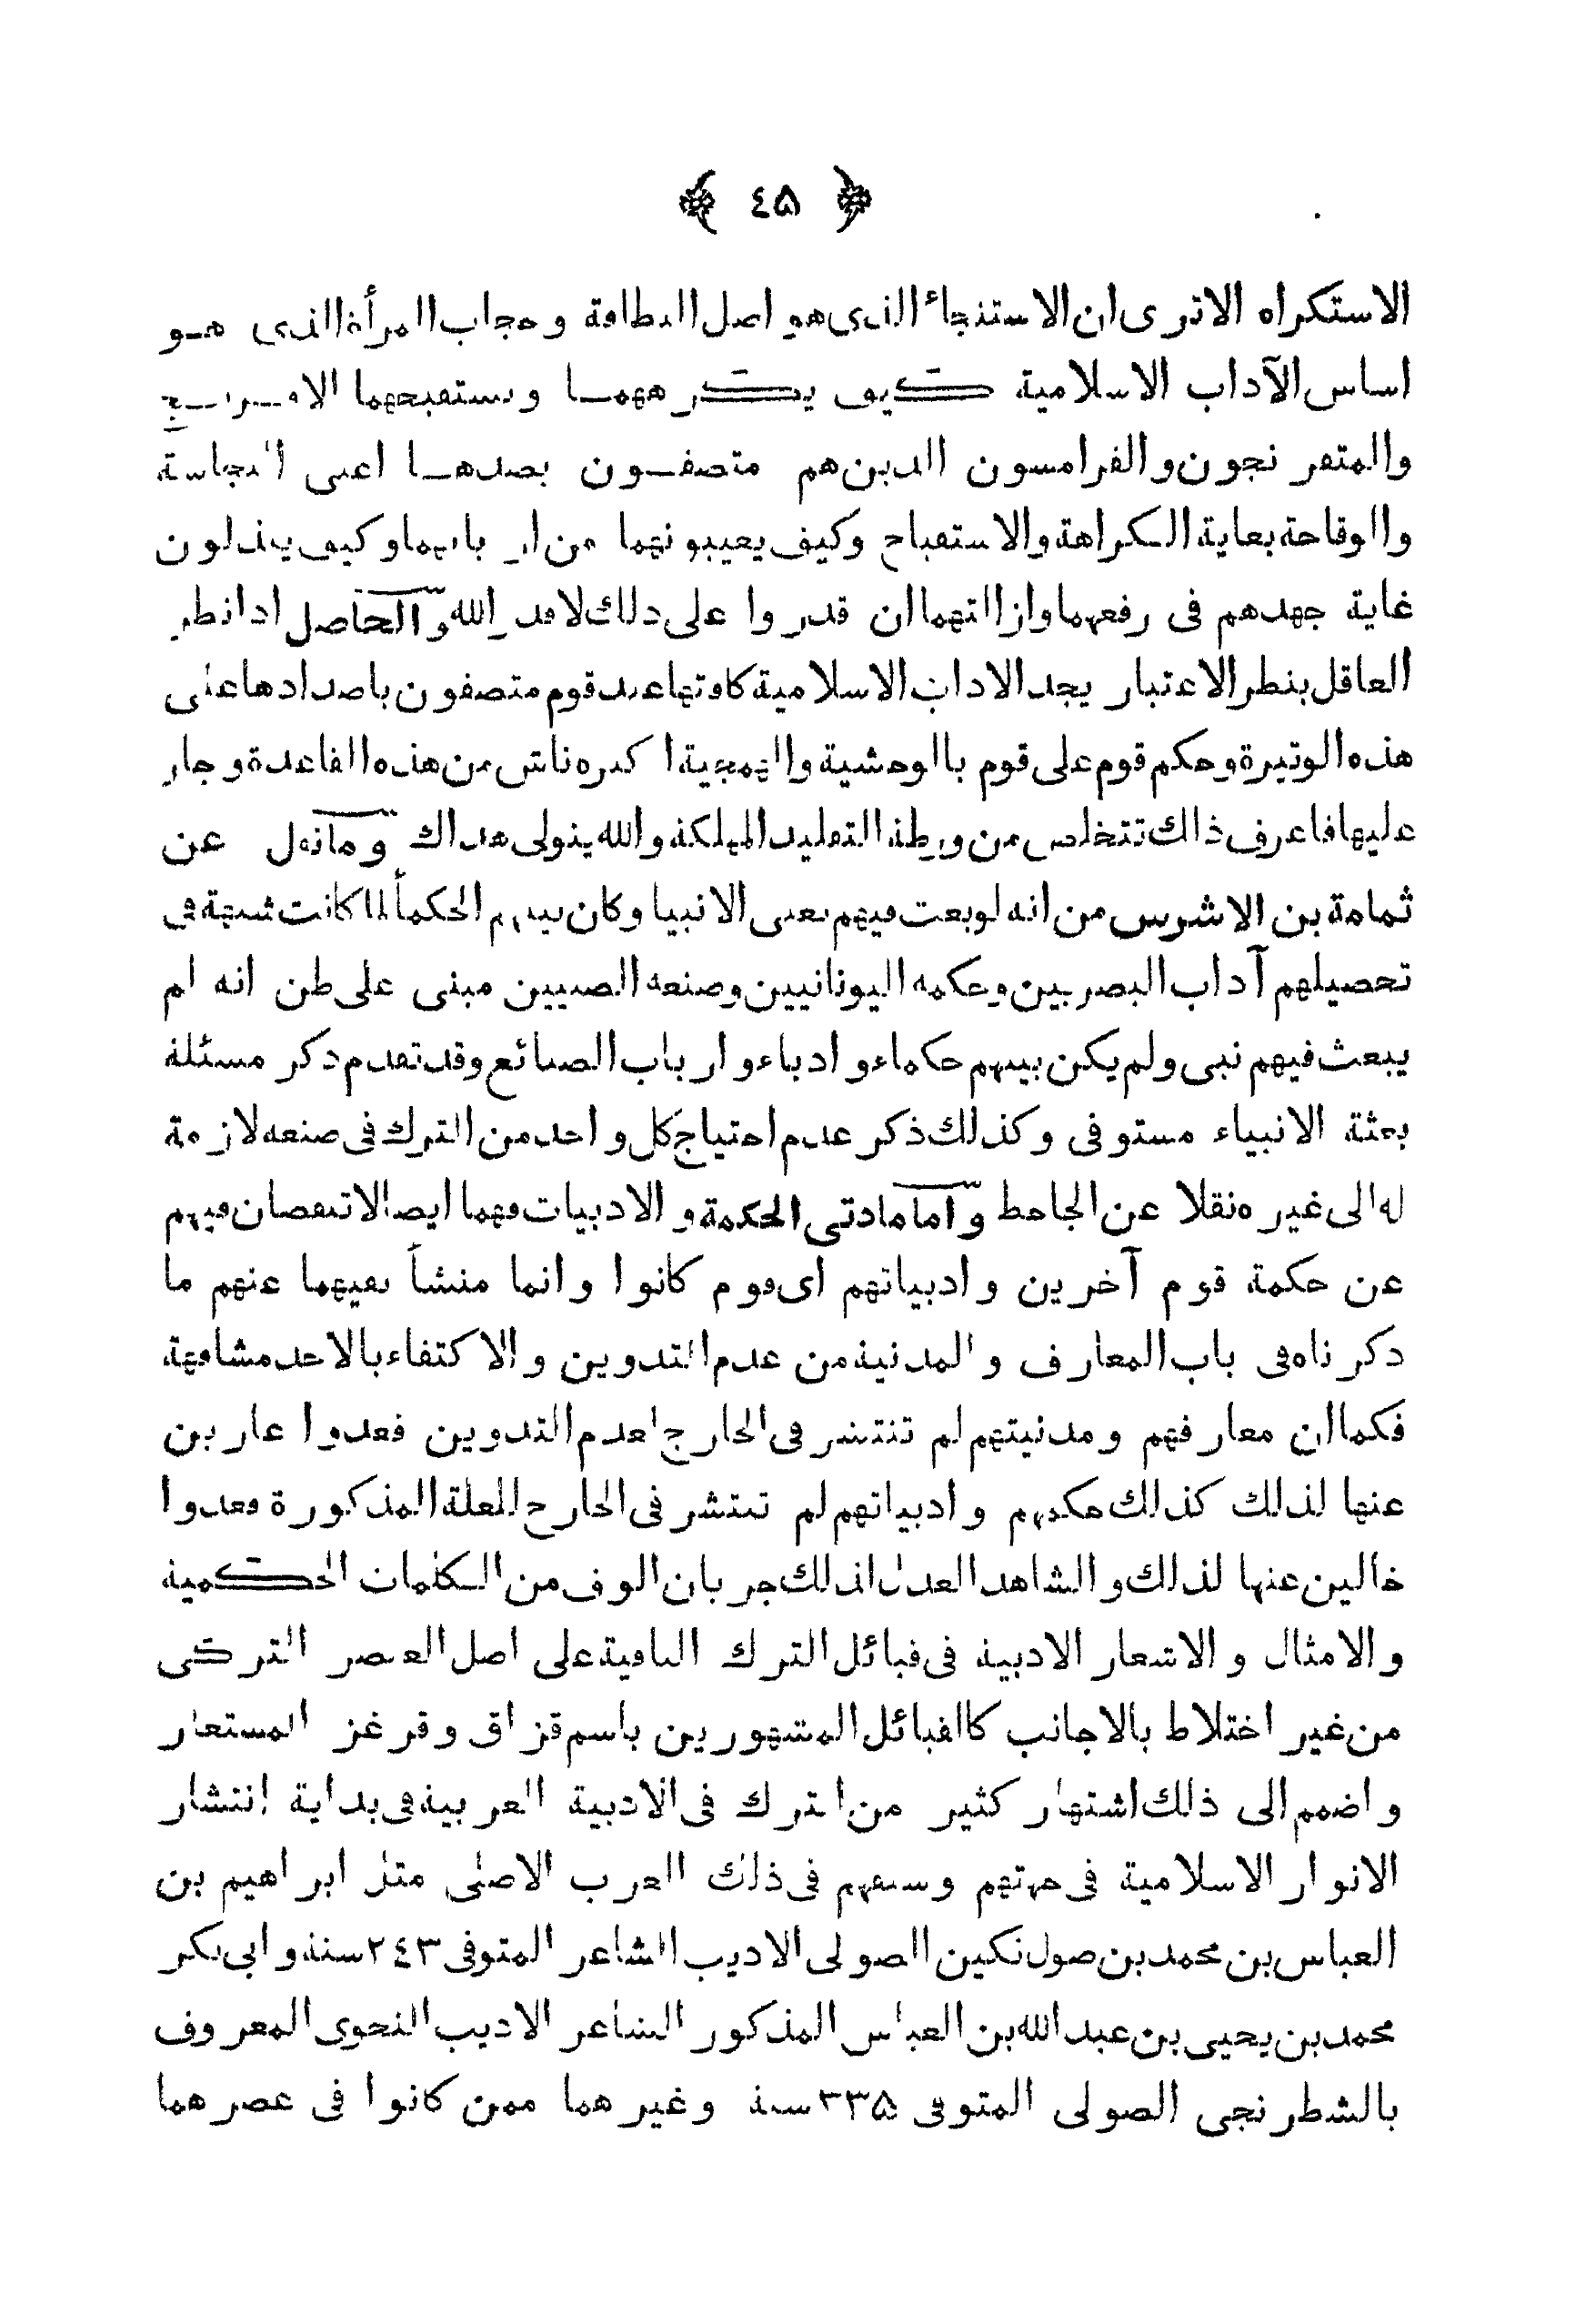 ﴿ ٤٥ ﴾
الاستكراه الاترى ان الاستنجاء الذى هو اصل النظافة وحجاب المرأة الذى هـو
اساس الآداب الاسلامية كيف يكرههمـا ويستقبحهما الافـرنـج
والمتفرنجون والفرامسون الذين هم متصفـون بضدهـا اعنى النجاسة
والوقاحة بغاية الكراهة والاستقباح وكيف يعيبونهما من اربابهما وكيف يبذلون
غاية جهدهم فى رفعهما وازالتهما ان قدروا على ذلك لاقدر الله والحاصل اذا نظر
العاقل بنظر الاعتبار يجد الاداب الاسلامية كافتها عند قوم متصفون باضدادها على
هذه الوتيرة وحكم قوم على قوم بالوحشية والهمجية اكثره ناش من هذه القاعدة وجار
عليها فاعرف ذالك تتخلص من ورطة التقليد المهلكة والله يتولى هداك وما نقل عن
ثمامة بن الاشرس من انه لو بعث فيهم بعض الانبيا وكان بينهم الحكمأ لما كانت شبهة فى
تحصيلهم آداب البصريين وحكمه اليونانيين وصنعه الصينيين مبنى على ظن انه لم
يبعث فيهم نبى ولم يكن بينهم حكماء وادباء وارباب الصنائع وقد تقدم ذكر مسئلة
بعثة الانبياء مستوفى وكذلك ذكر عدم احتياج كل واحد من الترك فى صنعه لازمة
له الى غيره نقلا عن الجاحظ واما مادتى الحكمة والادبيات فهما ايضا لاتنقصان فيهم
عن حكمة قوم آخرين وادبياتهم اى قوم كانوا وانما منشأ نفيهما عنهم ما
ذكرناه فى باب المعارف والمدنية من عدم التدوين والاكتفاء بالاخذ مشافهة
فكما ان معارفهم ومدنيتهم لم تنتشر فى الخارج لعدم التدوين فعدوا عاربن
عنها لذلك كذلك حكمهم وادبياتهم لم تنتشر فى الخارج للعلة المذكورة فعدوا
خالين عنها لذلك والشاهد العدل لذلك جربان الوف من الكلمات الحكمية
والامثال والاشعار الادبية فى قبائل الترك الباقية على اصل العنصر التركى
من غير اختلاط بالاجانب كالقبائل المشهورين باسم قزاق وقرغز المستعار
واضمم الى ذلك اشتهار كثير من الترك فى الادبية العربية فى بداية انتشار
الانوار الاسلامية فى جهتهم وسبقهم فى ذلك العرب الاصلى مثل ابراهيم بن
العباس بن محمد بن صول تكين الصولى الاديب الشاعر المتوفى ٢٤٣ سنة وابى بكر
محمد بن يحيى بن عبد الله بن العباس المذكور الشاعر الاديب النحوى المعروف
بالشطرنجى الصولى المتوفى ٣٣٥ سنة وغيرهما ممن كانوا فى عصرهما